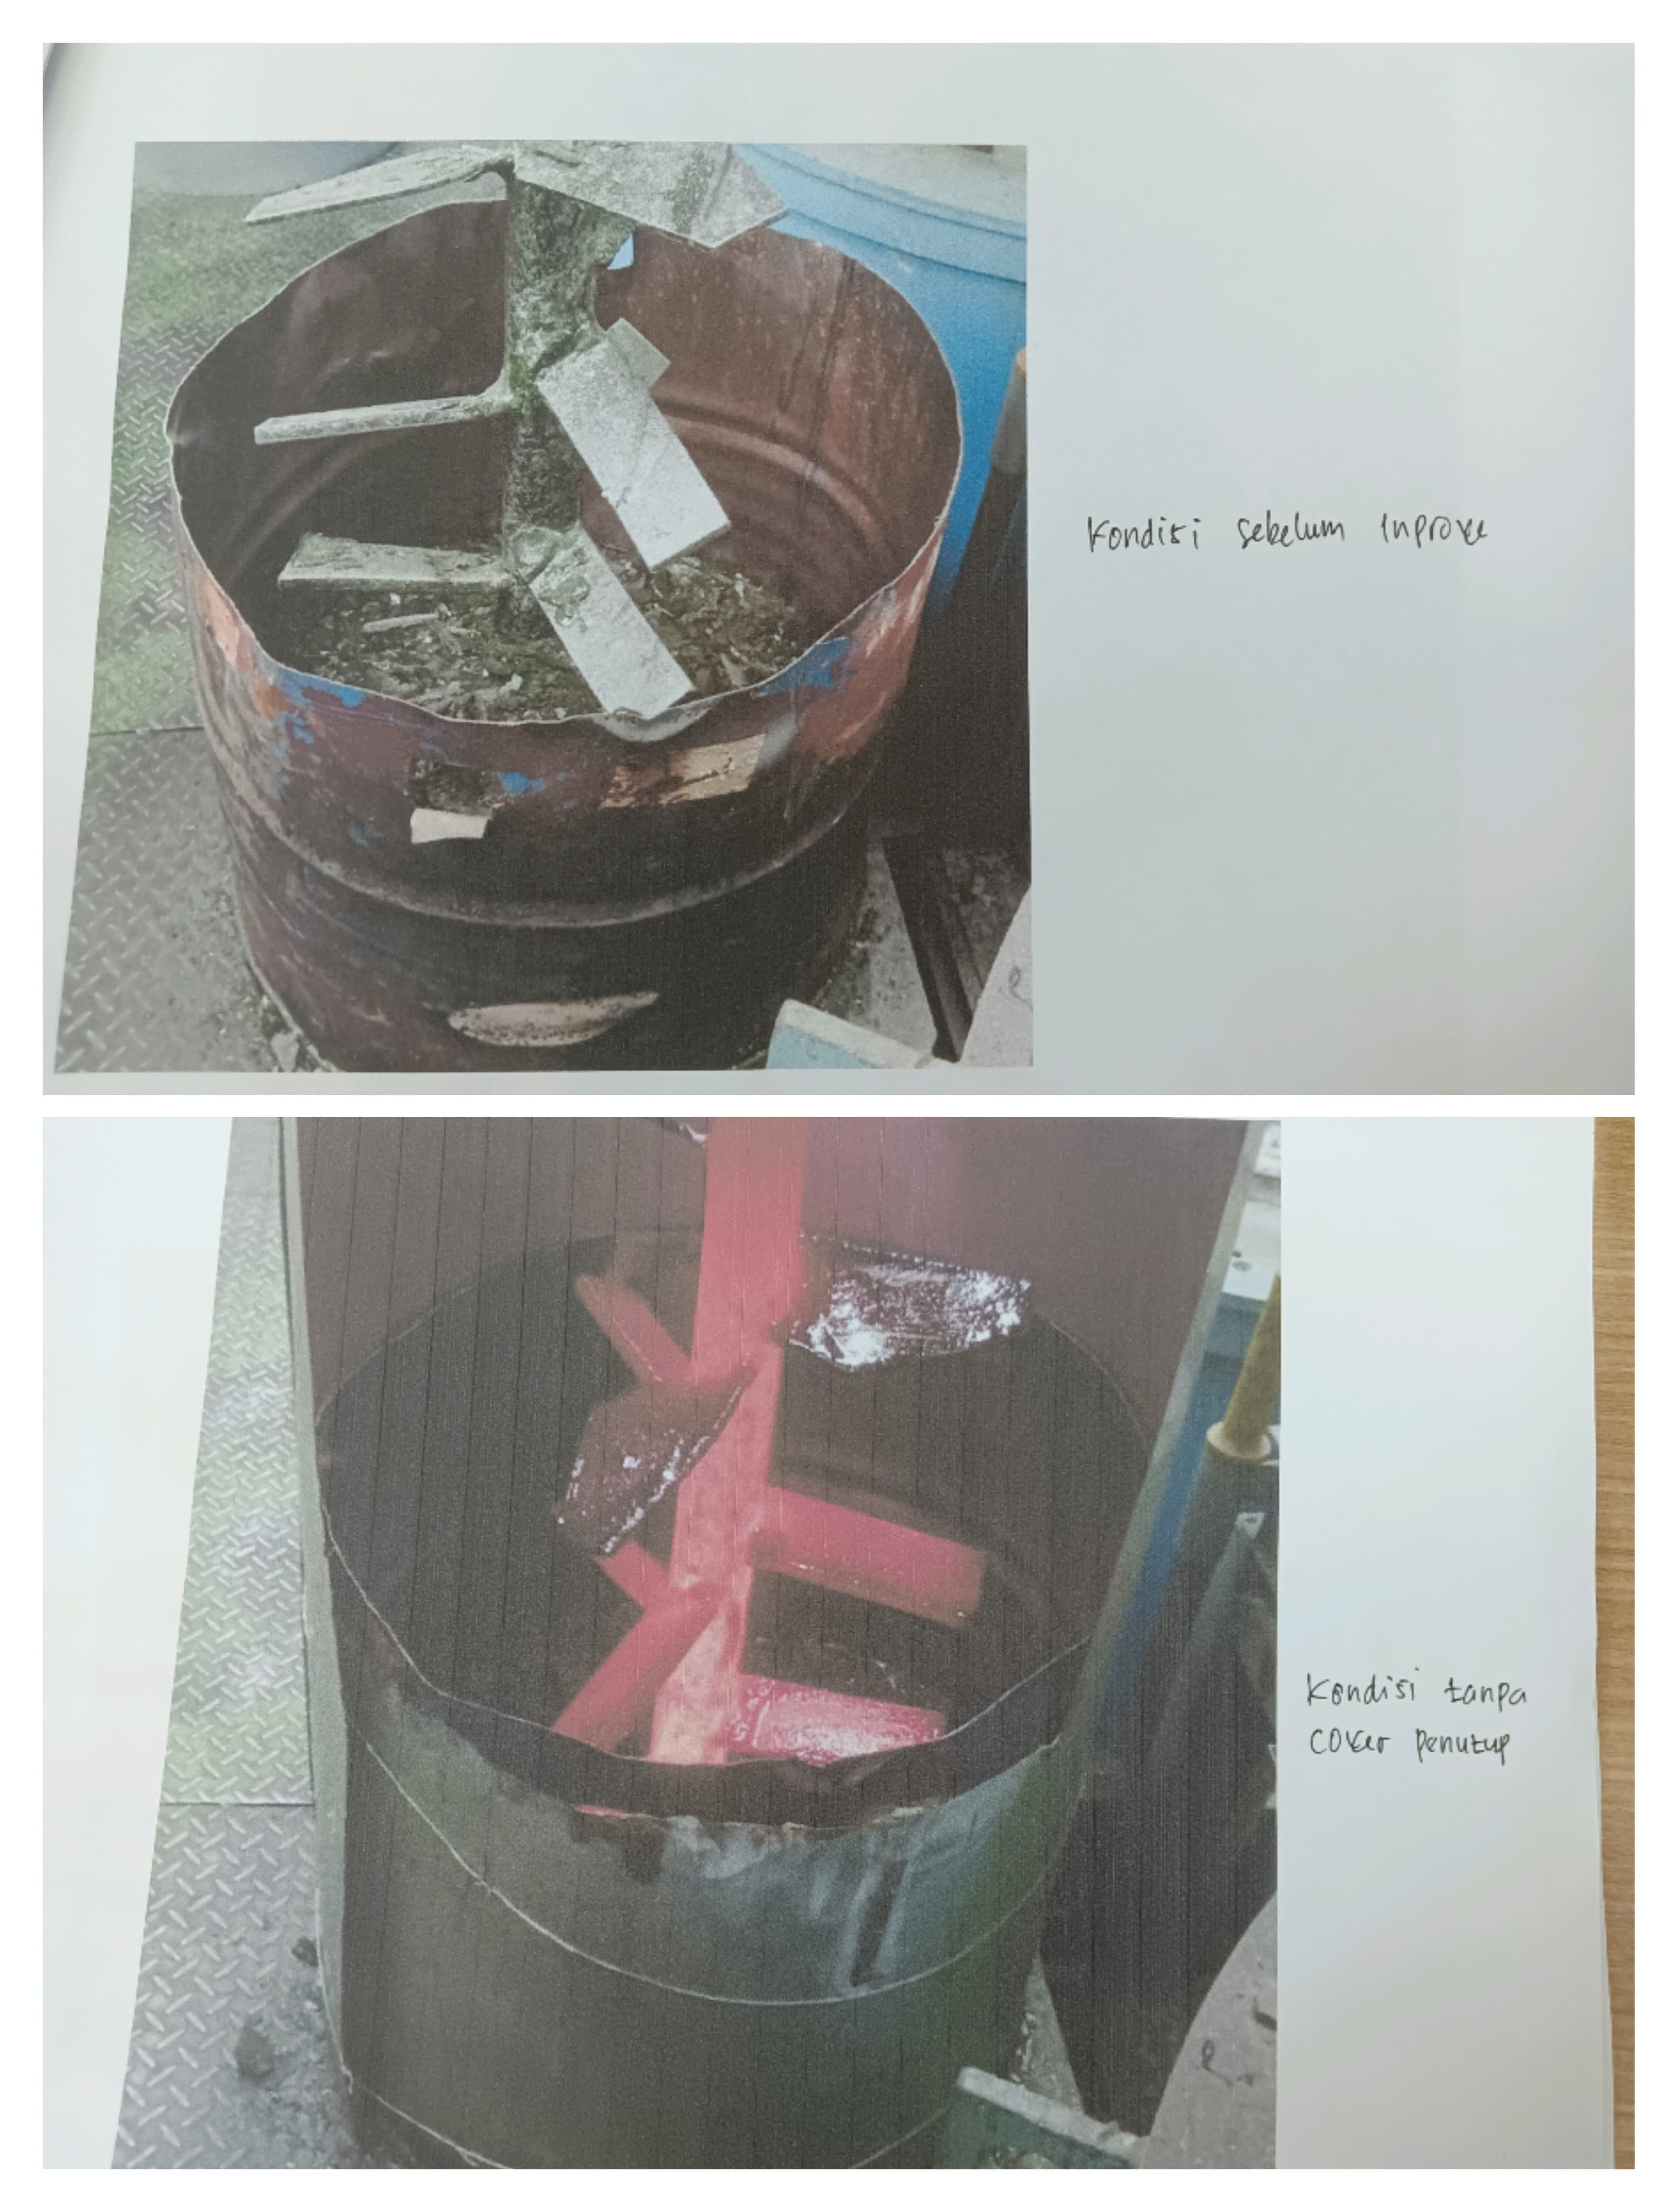 Kondisi sebelum Inprove
Kondisi tanpa
cover penutup